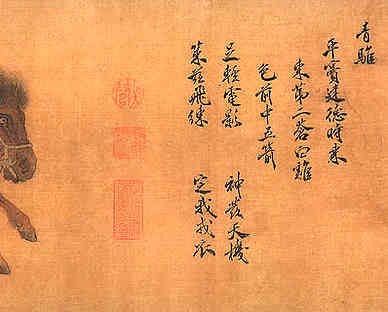 青騅
平竇建德時乘
東第二蒼白雜
色前中五箭
足輕電影　神發天機
策茲飛練　定我戎衣